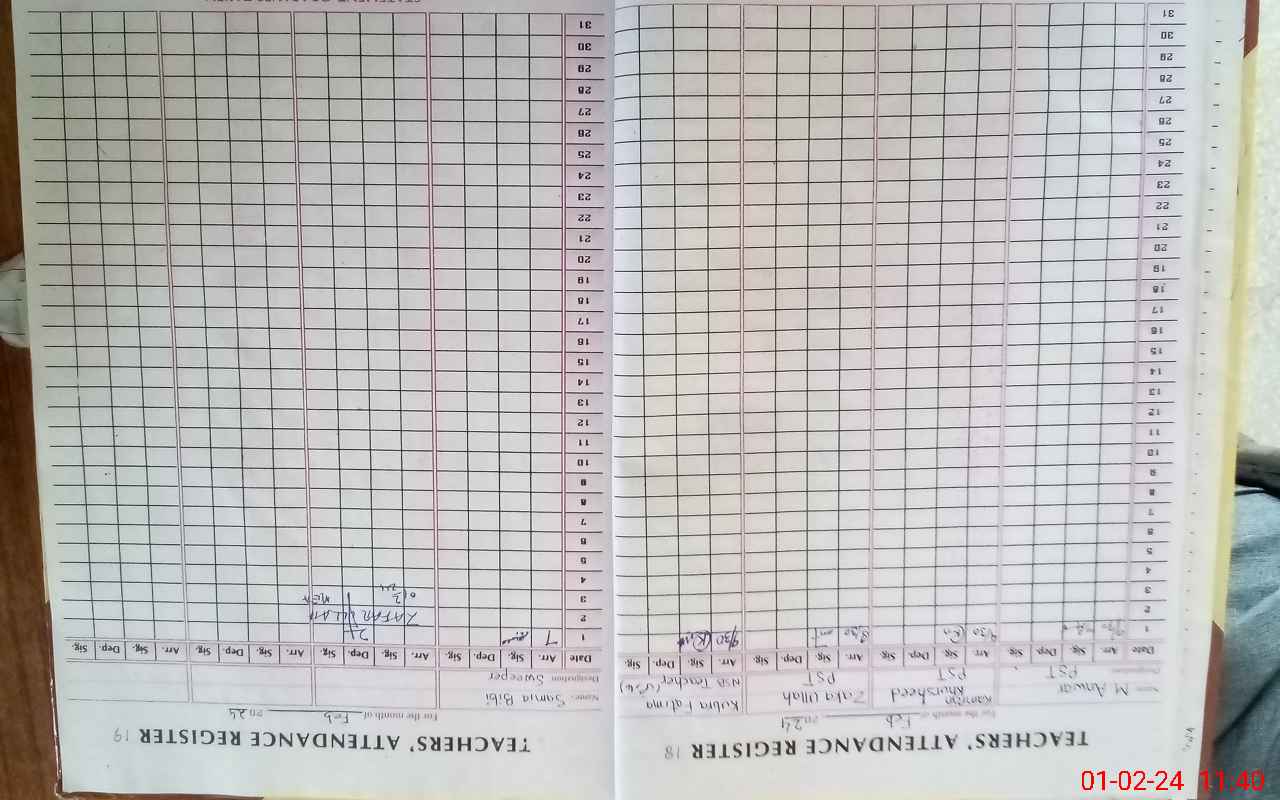 TEACHERS' ATTENDANCE REGISTER 18
For the month of Feb 2024
Name M Anwar Kamran Khursheed Zaka Ullah Kubra Fatima
PST PST PST NSB Teacher
Date Arr. Sig. Dep. Sig. Arr. Sig. Dep. Sig. Arr. Sig. Dep. Sig. Arr. Sig. Dep. Sig.
1 8/30 8/30 9/30
2
3
4
5
6
7
8
9
10
11
12
13
14
15
16
17
18
19
20
21
22
23
24
25
26
27
28
29
30
31
TEACHERS' ATTENDANCE REGISTER 19
For the month of Feb 2024
Name: Samia Bibi
Designation Sweeper
Date Arr. Sig. Dep. Sig. Arr. Sig. Dep. Sig. Arr. Sig. Dep. Sig. Arr. Sig. Dep. Sig.
1
2 ZAFAR ULLAH
3 MEA
4
5
6
7
8
9
10
11
12
13
14
15
16
17
18
19
20
21
22
23
24
25
26
27
28
29
30
31
01-02-24 11:40